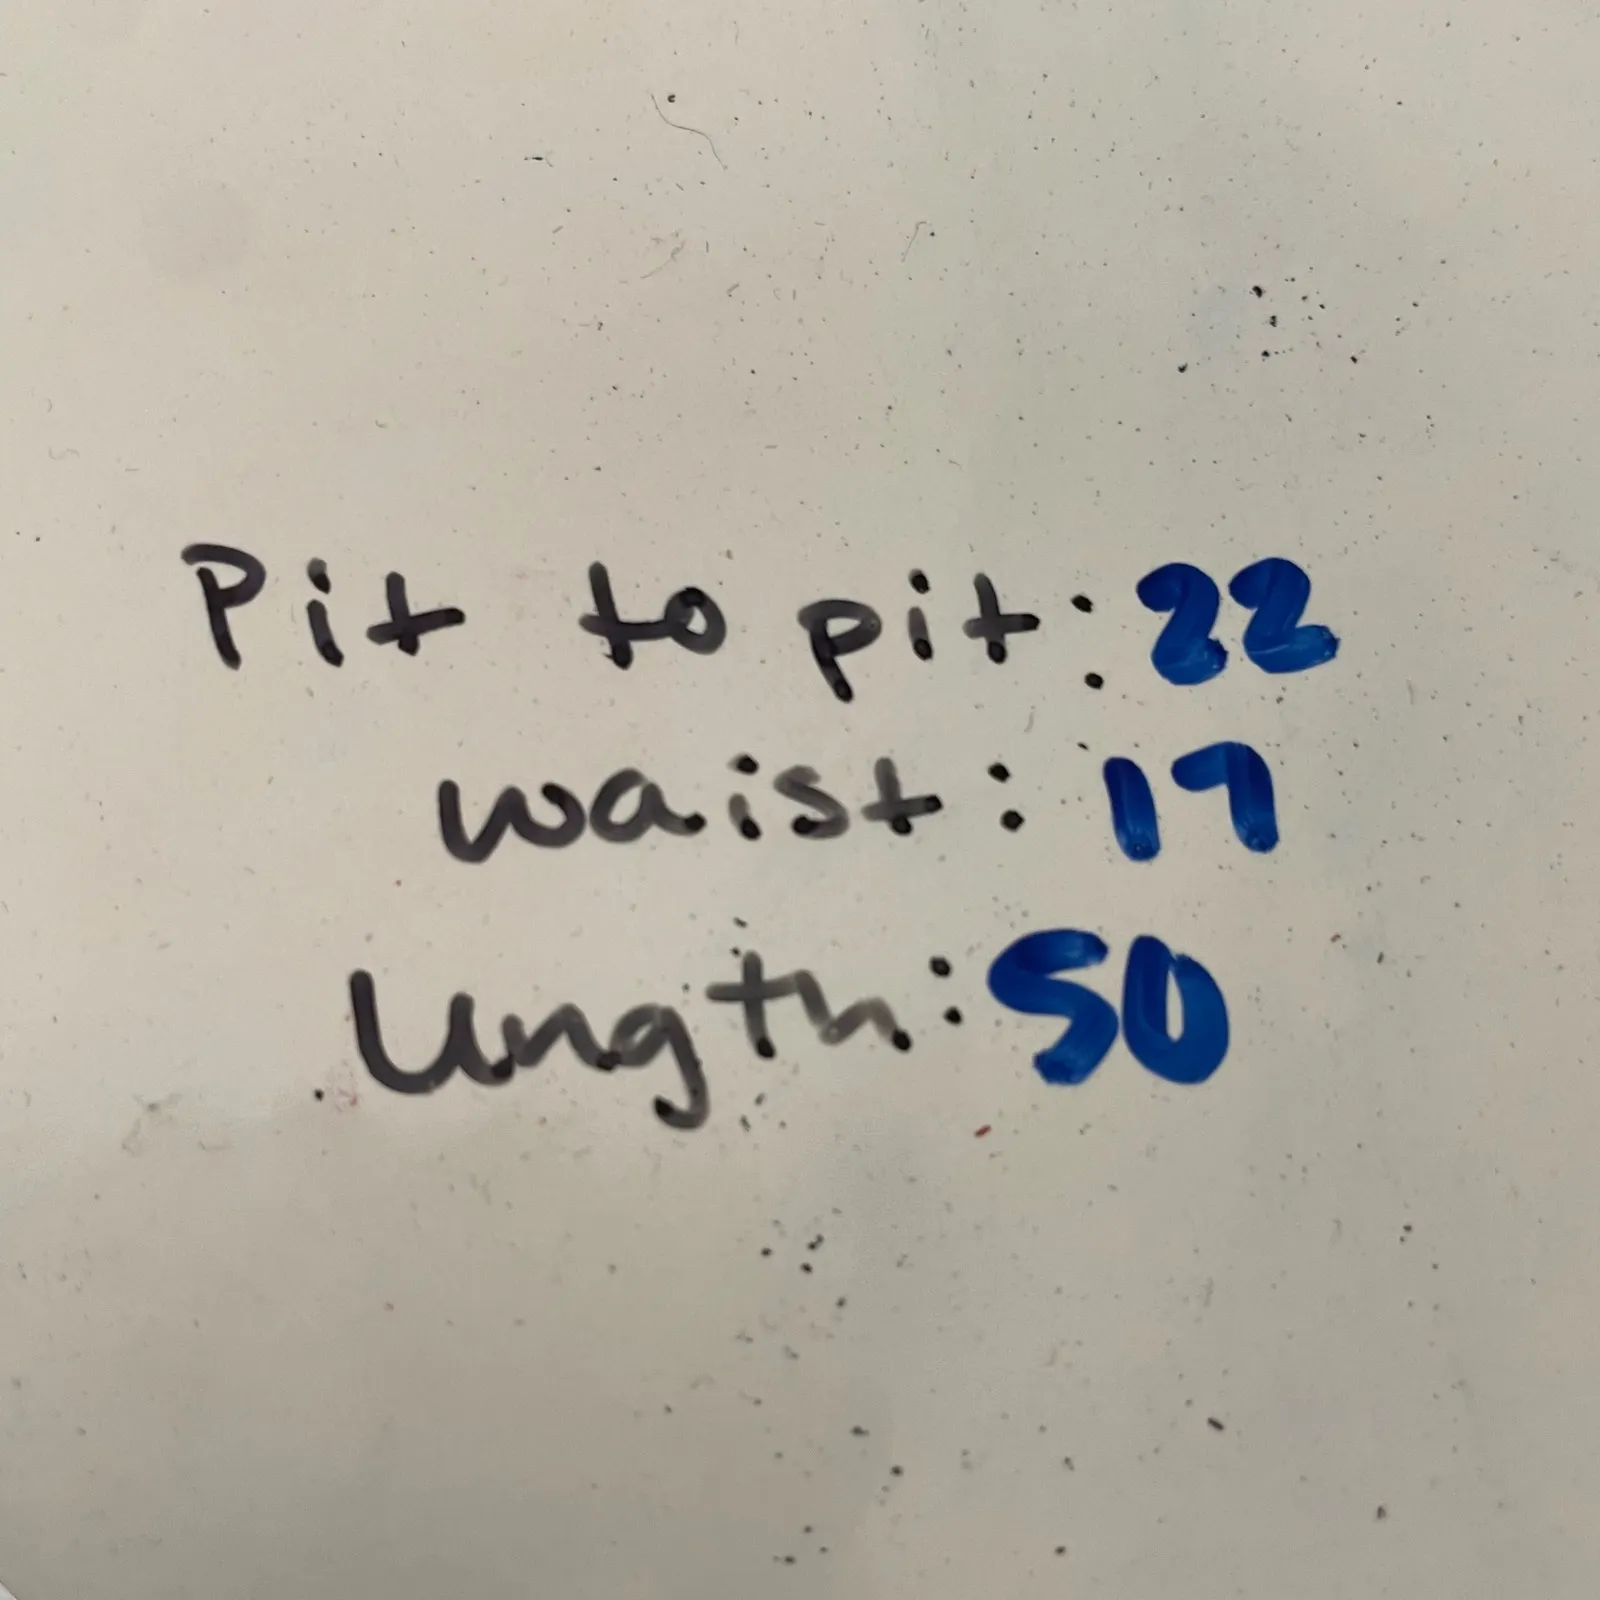 Pit to pit: 22
waist: 17
length: 50